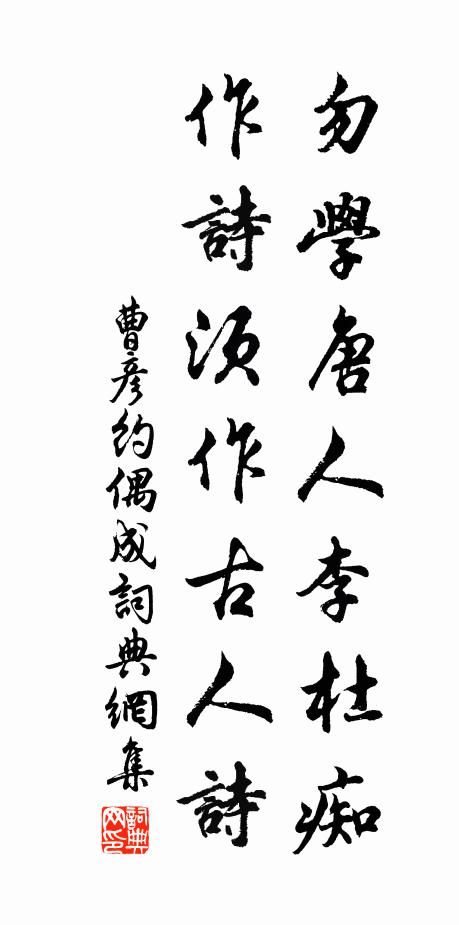 勿學唐人李杜痴
作詩須作古人詩
曹彥約偶成詞典網集
詞典网印